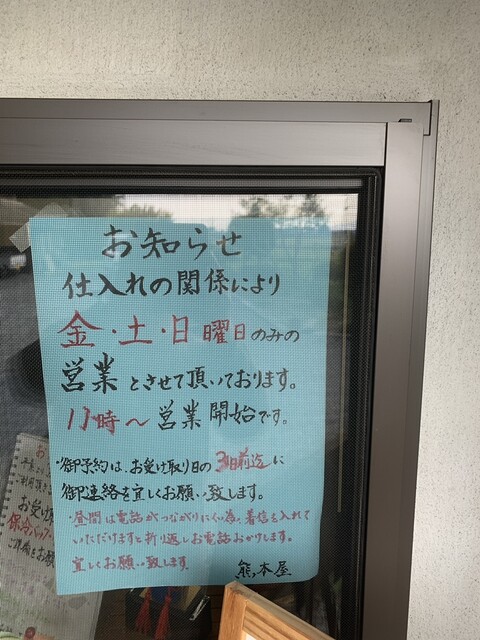 お知らせ
仕入れの関係により
金・土・日曜日のみの
営業とさせて頂いております。
11時～営業開始です。
・御予約は、お受け取り日の3日前迄に
御連絡を宜しくお願い致します。
・昼間は電話がつながりにくい為、着信を入れて
いただけますと折り返しお電話おかけします。
宜しくお願い致します
熊本屋
お受け
保冷バッグ